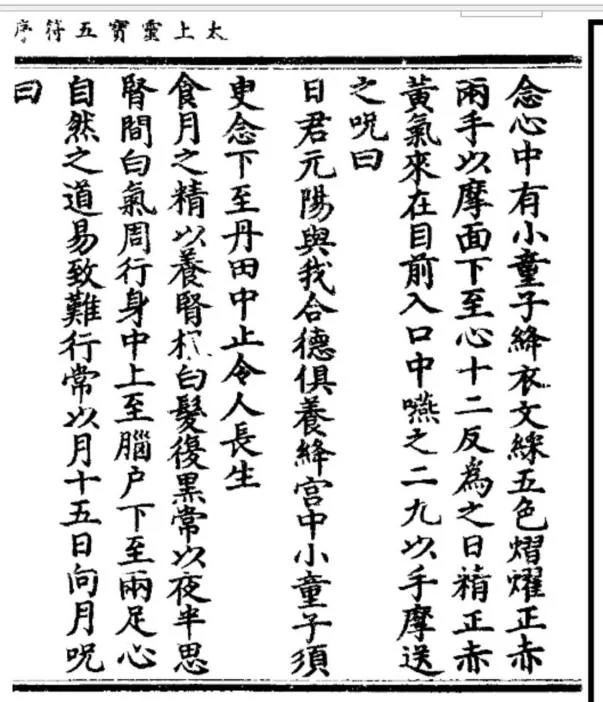 太上靈寶五符序
念心中有小童子絳衣文綵五色熠燿正赤
兩手以摩面下至心十二反為之日精正赤
黃氣來在目前入口中嚥之二九以手摩送
之呪曰
日君元陽與我合德俱養絳宮中小童子須
臾念下至丹田中止令人長生
食月之精以養腎白髮復黑常以夜半思
腎間白氣周行身中上至腦戶下至兩足心
自然之道易致難行常以月十五日向月呪
曰